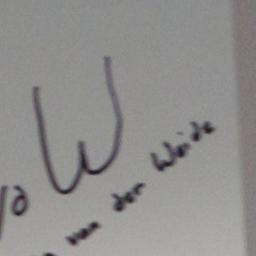 W
van der Weide